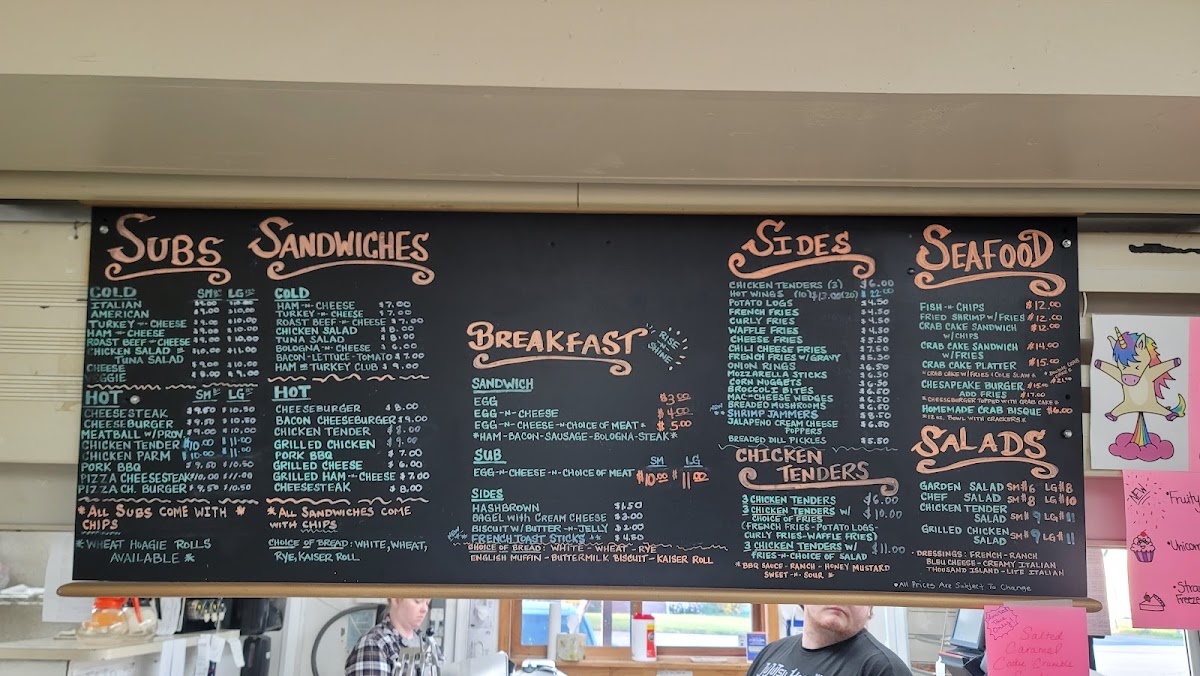 SUBS
COLD SM LG
ITALIAN $9.00 $10.00
AMERICAN $9.00 $10.00
TURKEY-N-CHEESE $9.00 $10.00
HAM-N-CHEESE $9.00 $10.00
ROAST BEEF-N-CHEESE $9.00 $10.00
CHICKEN SALAD $10.00 $11.00
TUNA SALAD
CHEESE
VEGGIE $8.00 $9.00
HOT SM LG
CHEESESTEAK $9.50 $10.50
CHEESEBURGER $9.50 $10.50
MEATBALL W/PROV. $9.00 $10.00
CHICKEN TENDER $10.00 $11.00
CHICKEN PARM $10.00 $11.00
PORK BBQ $9.50 $10.50
PIZZA CHEESESTEAK $10.00 $11.00
PIZZA CH. BURGER $9.50 $10.50
*ALL SUBS COME WITH *
CHIPS
*WHEAT HOAGIE ROLLS
AVAILABLE *
SANDWICHES
COLD
HAM-N-CHEESE $7.00
TURKEY-N-CHEESE $7.00
ROAST BEEF-N-CHEESE $7.00
CHICKEN SALAD $8.00
TUNA SALAD $8.00
BOLOGNA-N-CHEESE $6.00
BACON-LETTUCE-TOMATO $7.00
HAM OR TURKEY CLUB $9.00
HOT
CHEESEBURGER $8.00
BACON CHEESEBURGER $9.00
CHICKEN TENDER $8.00
GRILLED CHICKEN $9.00
PORK BBQ $7.00
GRILLED CHEESE $6.00
GRILLED HAM-N-CHEESE $7.00
CHEESESTEAK $8.00
*ALL SANDWICHES COME
WITH CHIPS
CHOICE OF BREAD: WHITE, WHEAT,
RYE, KAISER ROLL
BREAKFAST
RISE
-N-
SHINE
SANDWICH
EGG $3.00
EGG-N-CHEESE $4.00
EGG-N-CHEESE-N-CHOICE OF MEAT * $5.00
*HAM-BACON-SAUSAGE-BOLOGNA-STEAK*
SUB SM LG
EGG-N-CHEESE-N-CHOICE OF MEAT $10.00 $11.00
SIDES
HASHBROWN $1.50
BAGEL WITH CREAM CHEESE $3.00
BISCUIT W/BUTTER-N-JELLY $2.00
FRENCH TOAST STICKS $4.50
CHOICE OF BREAD: WHITE - WHEAT - RYE
ENGLISH MUFFIN - BUTTERMILK BISCUIT - KAISER ROLL
SIDES
CHICKEN TENDERS (3) $6.00
HOT WINGS (10) $12.00 (20) $22.00
POTATO LOGS $4.50
FRENCH FRIES $4.50
CURLY FRIES $4.50
WAFFLE FRIES $4.50
CHEESE FRIES $5.50
CHILI CHEESE FRIES $7.50
FRENCH FRIES W/GRAVY $5.50
ONION RINGS $6.50
MOZZARELLA STICKS $6.50
CORN NUGGETS $6.50
BROCCOLI BITES $6.50
MAC-CHEESE WEDGES $6.50
BREADED MUSHROOMS $6.50
SHRIMP JAMMERS $8.50
JALAPENO CREAM CHEESE $6.50
POPPERS
BREADED DILL PICKLES $5.50
CHICKEN
TENDERS
3 CHICKEN TENDERS $6.00
3 CHICKEN TENDERS W/ $10.00
CHOICE OF FRIES
(FRENCH FRIES-POTATO LOGS-
CURLY FRIES-WAFFLE FRIES)
3 CHICKEN TENDERS W/ $11.00
FRIES-N-CHOICE OF SALAD
*BBQ SAUCE - RANCH - HONEY MUSTARD
SWEET-N-SOUR *
SEAFOOD
FISH-N-CHIPS $12.00
FRIED SHRIMP W/FRIES $12.00
CRAB CAKE SANDWICH $12.00
W/CHIPS
CRAB CAKE SANDWICH $14.00
W/FRIES
CRAB CAKE PLATTER $15.00
*CRAB CAKE W/FRIES & COLE SLAW *
CHESAPEAKE BURGER $15.00
ADD FRIES $17.00
*CHEESEBURGER TOPPED WITH CRAB CAKE*
HOMEMADE CRAB BISQUE $6.00
*12 OZ. BOWL WITH CRACKERS*
SALADS
GARDEN SALAD SM $6 LG $8
CHEF SALAD SM $8 LG $10
CHICKEN TENDER
SALAD SM $9 LG $11
GRILLED CHICKEN
SALAD SM $9 LG $11
*DRESSINGS: FRENCH-RANCH
BLEU CHEESE - CREAMY ITALIAN
THOUSAND ISLAND - LITE ITALIAN
*All Prices Are Subject To Change
NEW
Salted
Caramel